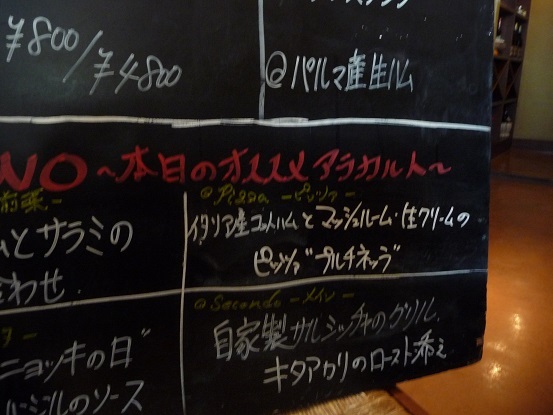 ¥800/¥4800
@パルマ産生ハム
NO ～本日のオススメアラカルト～
前菜-
ムとサラミの
合わせ.
@Pizza -ピッツァ-
イタリア産コットハムとマッシュルーム・生クリームの
ピッツァ"プルチネッラ"
@Secondo -メイン-
自家製サルシッチャのグリル.
キタアカリのロースト添え
ニョッキの日"
のソース